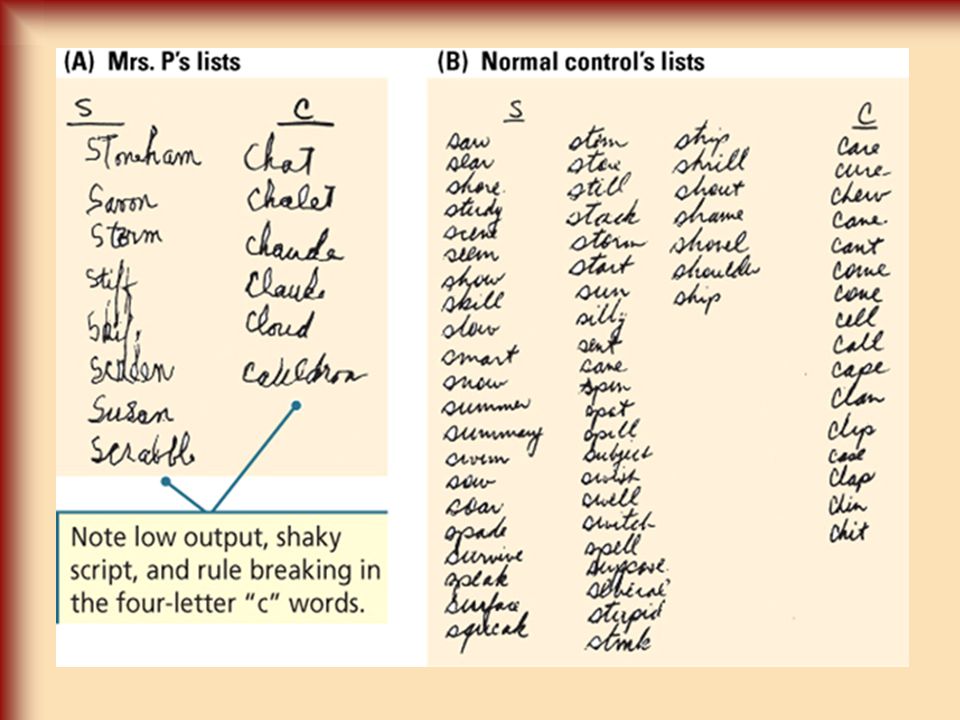 (A) Mrs. P's lists
S
Stoneham
Saxon
Storm
Stiff
Susan
Scrabble
C
Chat
Chalet
Chaude
Claude
Cloud
Cauldron
Note low output, shaky
script, and rule breaking in
the four-letter "c" words.
(B) Normal control's lists
S
saw
slar
shore.
study
scene
seem
show
skill
slow
smart
snow
summer
summary
swim
sow
soar
spade
survive
speak
surface
squeak
stem
stove
still
stack
storm
start
sun
silly
sent
sane
spin
spat
spill
subject
swish
swell
switch
spell
suppose
several
stupid
stink
strip
shrill
shout
shame
shovel
shoulder
ship
C
care
cure
chew
cane
cant
come
cone
cell
call
cape
clan
clip
case
clap
chin
chit